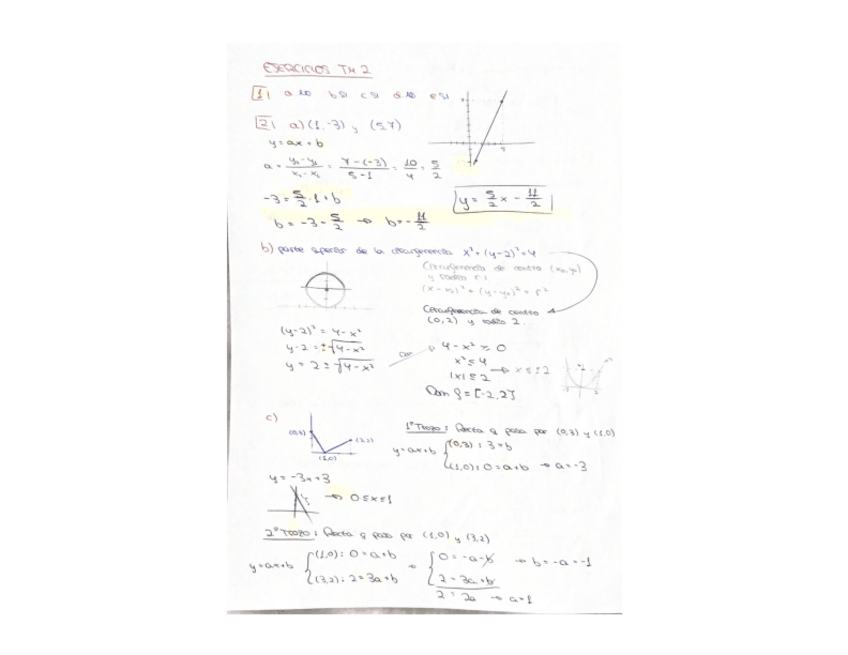 EJERCICIOS TM 2
1) a NO b SI c SI d NO e SI
2) a) (1,-3) y (5,7)
y = ax + b
a = = 7-(-3) / 5-1 = 10/4 = 5/2
-3 = 5/2 · 1 + b
b = -3 - 5/2 → b = -11/2
y = 5/2 x - 11/2
b) parte superior de la circunferencia x² + (y-2)² = 4
Circunferencia de centro (x₀,y₀)
y radio r:
(x-x₀)² + (y-y₀)² = r²
Circunferencia de centro
(0,2) y radio 2.
(y-2)² = 4-x²
y-2 = ±√4-x²
y = 2 ± √4-x²
4-x² ≥ 0
x² ≤ 4
|x| ≤ 2 → x ≤ ±2
Dom f = [-2,2]
c)
(0,3)
(1,0)
(3,2)
1º Trozo: Recta q pasa por (0,3) y (1,0)
y = ax+b
(0,3): 3 = b
(1,0): 0 = a+b → a = -3
y = -3x+3
→ 0 ≤ x ≤ 1
2º Trozo: Recta q pasa por (1,0) y (3,2)
y = ax+b
(1,0): 0 = a+b
(3,2): 2 = 3a+b
⇒
0 = -a-b → b = -a = -1
2 = 3a+b
2 = 2a → a = 1